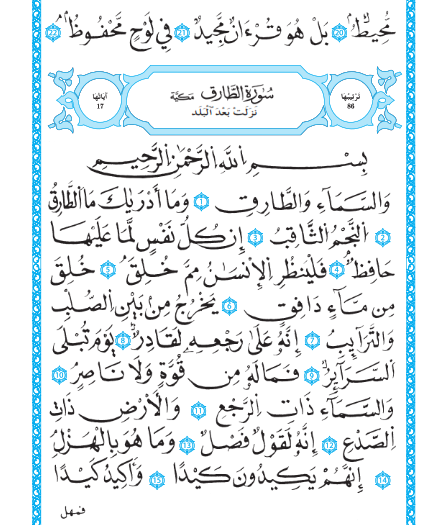 مُّحِيطٌۢ ٢٠ بَلْ هُوَ قُرْءَانٌ مَّجِيدٌ ٢١ فِي لَوْحٍ مَّحْفُوظٍۭ ٢٢
ترتيبها 86 سُورَةُ الطَّارِقِ مَكِيَّة آياتها 17
نَزَلَتْ بَعْدَ الْبَلَد
بِسْمِ اللَّهِ الرَّحْمَٰنِ الرَّحِيمِ
وَالسَّمَآءِ وَالطَّارِقِ ١ وَمَآ أَدْرَىٰكَ مَا الطَّارِقُ
٢ النَّجْمُ الثَّاقِبُ ٣ إِن كُلُّ نَفْسٍ لَّمَّا عَلَيْهَا
حَافِظٌ ٤ فَلْيَنظُرِ الْإِنسَٰنُ مِمَّ خُلِقَ ٥ خُلِقَ
مِن مَّآءٍ دَافِقٍ ٦ يَخْرُجُ مِنۢ بَيْنِ الصُّلْبِ
وَالتَّرَآئِبِ ٧ إِنَّهُۥ عَلَىٰ رَجْعِهِۦ لَقَادِرٌ ٨ يَوْمَ تُبْلَى
السَّرَآئِرُ ٩ فَمَا لَهُۥ مِن قُوَّةٍ وَلَا نَاصِرٍ ١٠
وَالسَّمَآءِ ذَاتِ الرَّجْعِ ١١ وَالْأَرْضِ ذَاتِ
الصَّدْعِ ١٢ إِنَّهُۥ لَقَوْلٌ فَصْلٌ ١٣ وَمَا هُوَ بِالْهَزْلِ
١٤ إِنَّهُمْ يَكِيدُونَ كَيْدًا ١٥ وَأَكِيدُ كَيْدًا
فمهل